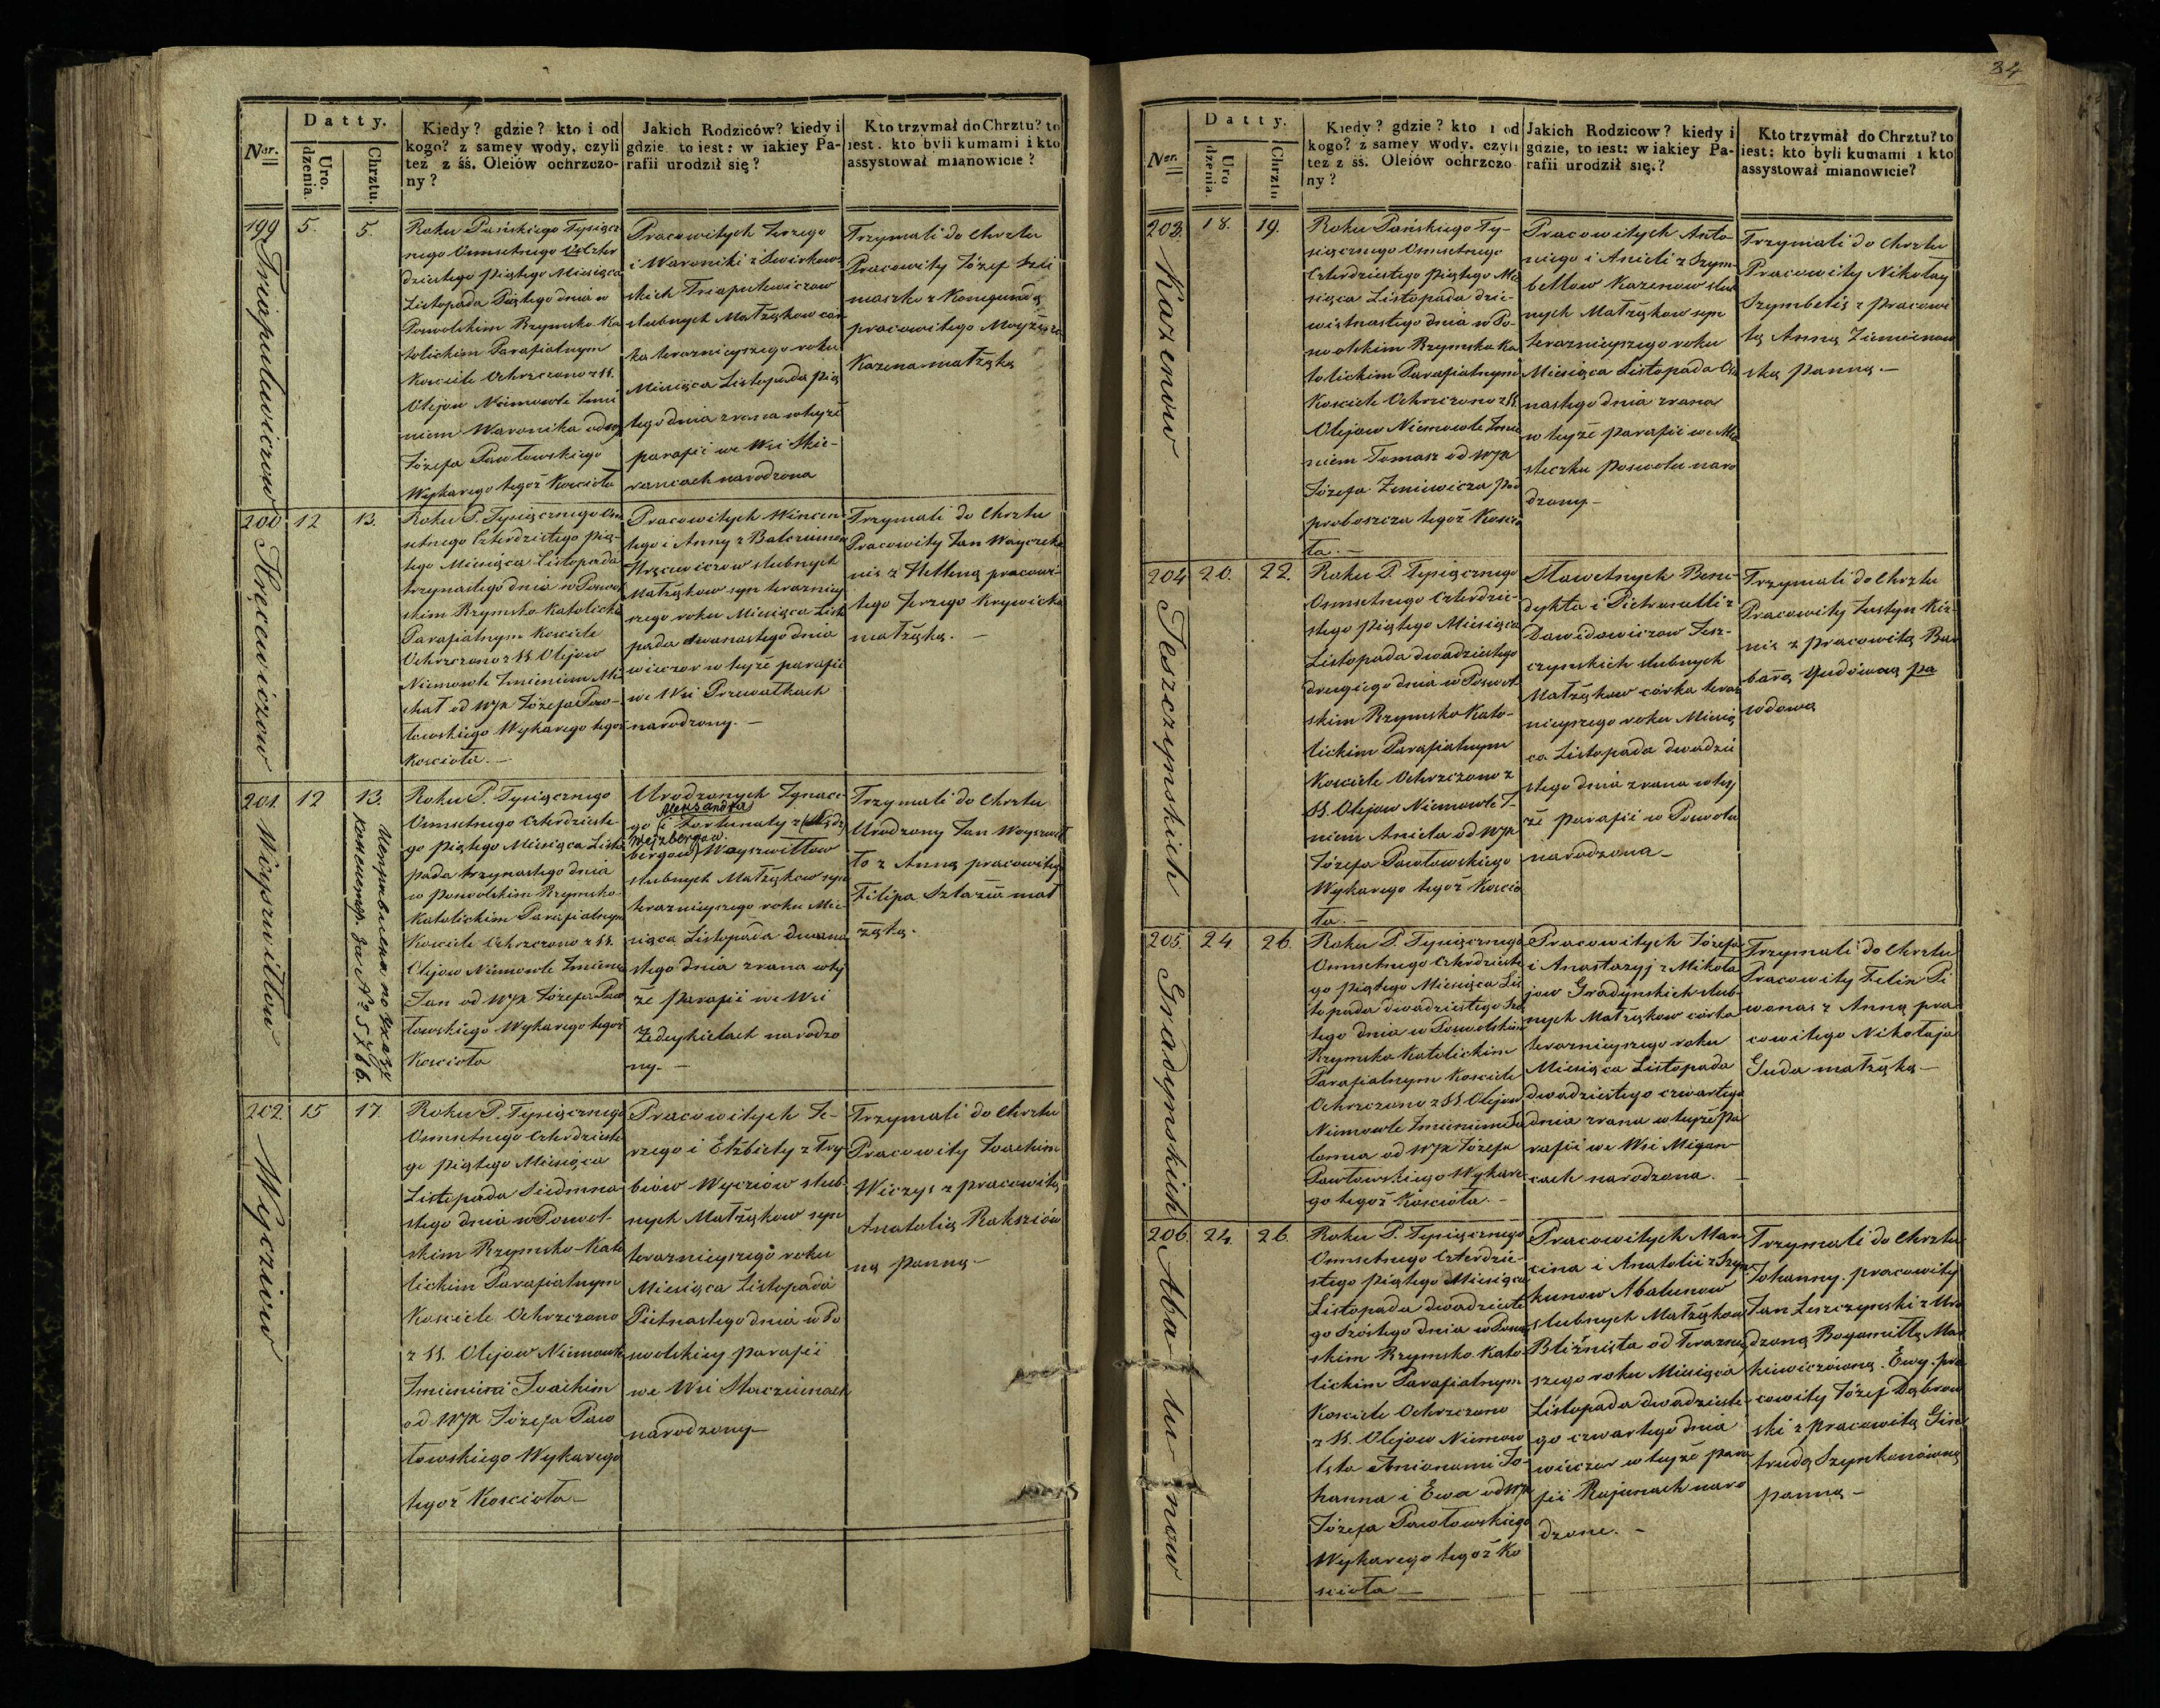 Datty.
Nor.
Urodzenia.
Chrztu.
Kiedy? gdzie? kto i od
kogo? z samey wody, czyli
tez z śś. Oleiów ochrzczo-
ny?
Jakich Rodziców? kiedy i
gdzie to iest: w iakiey Pa-
rafii urodził się?
Kto trzymał do Chrztu? to
iest. kto byli kumami i kto
assystował mianowicie?
199
5.
5.
Roku Pańskiego Tysiącz
nego Osmsetnego Czter
dziestego piątego Miesiąca
Listopada Piątego dnia w
Poswolskim Rzymsko Ka
tolickim Parafialnym
Kosciele Ochrzczono z SS.
Olejow Niemowle Imie
niem Waronika od WJX
Józefa Pawłowskiego
Wykarego tegoż Koscioła
Pracowitych Jerzego
i Waroniki z
skich
slubnych Małżąkow cór
ka teraznieyszego roku
Miesiąca Listopada pią
tego dnia zrana w teyże
parafii we Wsi Skie-
rancach narodzona
Trzymali do Chrztu
Pracowity Józef Szi
maszko z Konegundą
pracowitego Moyżesza
Kazena małżąką
200
12
13.
Roku P. Tysiącznego Osm
setnego Czterdziestego pią-
tego Miesiąca Listopada
trzynastego dnia w Poswol
skim Rzymsko Katolickim
Parafialnym Kosciele
Ochrzczono z SS. Olejow
Niemowle Imieniem Mi
chał od WJX Józefa Paw-
łowskiego Wykarego tegoż
Kosciola.—
Pracowitych Wincen-
tego i Anny z Balczunow
slubnych
Małżąkow syn terazniey
szego roku Miesiąca Listo
pada dwanastego dnia
wieczor w teyże parafii
we Wsi Przewalkach
narodzony.—
Trzymali do Chrztu
Pracowity Jan Wayczeka
nis z Helleną pracowi-
tego Jerzego Krywicka
małżąką.—
201.
Woyszwiłłow
12
13.
Исправлена по указу
Консисторіи за № 5766.
Roku P. Tysiącznego
Osmsetnego Czterdzieste-
go piątego Miesiąca Listo
pada trzynastego dnia
w Poswolskim Rzymsko-
Katolickim Parafialnym
Kosciele Ochrzczono z SS.
Olejow Niemowle Imieniem
Jan od WJX Józefa Paw
łowskiego Wykarego tegoż
Kosciola
Urodzonych Ignace-
Aleksandra
go i Fortunaty z
Weyzbergow
bergow) Woyszwiłłow
slubnych Małżąkow syn
teraznieyszego roku Mie-
siąca Listopada dwana
stego dnia zrana w tey
że parafii we Wsi
Żedeykielach narodzo
ny.—
Trzymali do Chrztu
Urodzony Jan Woyszwił
ło z Anną pracowitego
Filipa mał
żąką.
202.
Wycziow
15
17.
Roku P. Tysiącznego
Osmsetnego Czterdzieste
go piątego Miesiąca
Listopada Siedmna
stego dnia w Poswol-
skim Rzymsko-Kato
lickim Parafialnym
Kosciele Ochrzczono
z SS. Olejow Niemowle
Imieniem Joachim
od WJX Józefa Paw
łowskiego Wykarego
tegoż Kosciola—
Pracowitych Je-
rzego i Elżbiety z Gry
biow Wyczow slub-
nych Małżąkow syn
teraznieyszego roku
Miesiąca Listopada
Pietnastego dnia w Po
swolskiey parafii
we Wsi Staczunach
narodzony—
Trzymali do Chrztu
Pracowity Joachim
Wiczys z pracowitą
Anatolią Rakszów
ną panną—
34
Datty.
Nor.
Urodzenia.
Chrztu
Kiedy? gdzie? kto i od
kogo? z samey wody, czyli
tez z śś. Oleiów ochrzczo
ny?
Jakich Rodzicow? kiedy i
gdzie, to iest: w iakiey Pa-
rafii urodził się.?
Kto trzymał do Chrztu? to
iest: kto byli kumami i kto
assystował mianowicie?
203.
Kazenow
18.
19.
Roku Pańskiego Ty-
siącznego Osmsetnego
Czterdziestego piątego Mie
siąca Listopada dzie-
wietnastego dnia w Po-
swolskim Rzymsko Ka
tolickim Parafialnym
Kosciele Ochrzczono z SS.
Olejow Niemowle Imie
niem Tomasz od WJX
Józefa Zmiewicza pod
proboszcza tegoż Koscio
ła.—
Pracowitych Anto-
niego i Anieli z Szym-
bellow Kazenow slub
nych Małżąkow syn
teraznieyszego roku
Miesiąca Listopada Ośm
nastego dnia zrana
w teyże parafii we Mia
steczku Poswolu naro
dzony—
Trzymali do Chrztu
Pracowity Nikołay
Szymbelis z pracowi
tą Anną Zimienow
ską panną.—
204
Jeszczynskich
20.
22.
Roku P. Tysiącznego
Osmsetnego Czterdzie-
stego piątego Miesiąca
Listopada dwadziestego
drugiego dnia w Poswol
skim Rzymsko Kato-
lickim Parafialnym
Kosciele Ochrzczono z
SS. Olejow Niemowle I-
niem Aniela od WJX
Józefa Pawłowskiego
Wykarego tegoż Koscio
ła.—
Sławetnych Bene-
dykta i Pietronelli z
Dawidowiczow Jesz-
czynskich slubnych
Małżąkow córka teraz
nieyszego roku Miesią
ca Listopada dwadzie
stego dnia zrana w tey
że parafii w Poswolu
narodzona—
Trzymali do Chrztu
Pracowity Justyn Kir-
nis z pracowitą Bar
barą
wdową
205.
Gradynskich
24
26.
Roku P. Tysiącznego
Osmsetnego Czterdzieste
go piątego Miesiąca Lis
topada dwadziestego Szós
tego dnia w Poswolskim
Rzymsko Katolickim
Parafialnym Kosciele
Ochrzczono z SS Olejow
Niemowle Imieniem Sa
lomea od WJX Józefa
Pawłowskiego Wykare
go tegoż Kosciola.—
Pracowitych Józefa
i Anastazyj z Mikoła
jow Gradynskich slub-
nych Małżąkow córka
teraznieyszego roku
Miesiąca Listopada
dwadziestego czwartego
dnia zrana w teyże pa
rafii we Wsi Migon-
cach narodzona.—
Trzymali do Chrztu
Pracowity Felix Pi
wonas z Anną pra
cowitego Nikołaja
Guda małżąką—
206.
Abalunow
24.
26.
Roku P. Tysiącznego
Osmsetnego Czterdzie-
stego piątego Miesiąca
Listopada dwadzieste
go Szóstego dnia w Poswol
skim Rzymsko Kato-
lickim Parafialnym
Kosciele Ochrzczono
z SS. Olejow Niemow
lęta Imionami Jo-
hanna i Ewa od WJX
Józefa Pawłowskiego
Wykarego tegoż Ko
sciola—
Pracowitych Mar
cina i Anatolii z Szym
kunow Abalunow
slubnych Małżąkow
Bliźnięta od Teraźniey
szego roku Miesiąca
Listopada dwadzieste-
go czwartego dnia
wieczor w teyże para
fii Rajunach naro
dzone.—
Trzymali do Chrztu
Johanny. pracowity
Jan Leszczynski z Uro
dzoną Bogumiłłą Mac
kiewiczówną. Ewy. pra
cowity Józef Dąbrow
ski z pracowitą Gier
trudą Szymkonówną
panną—